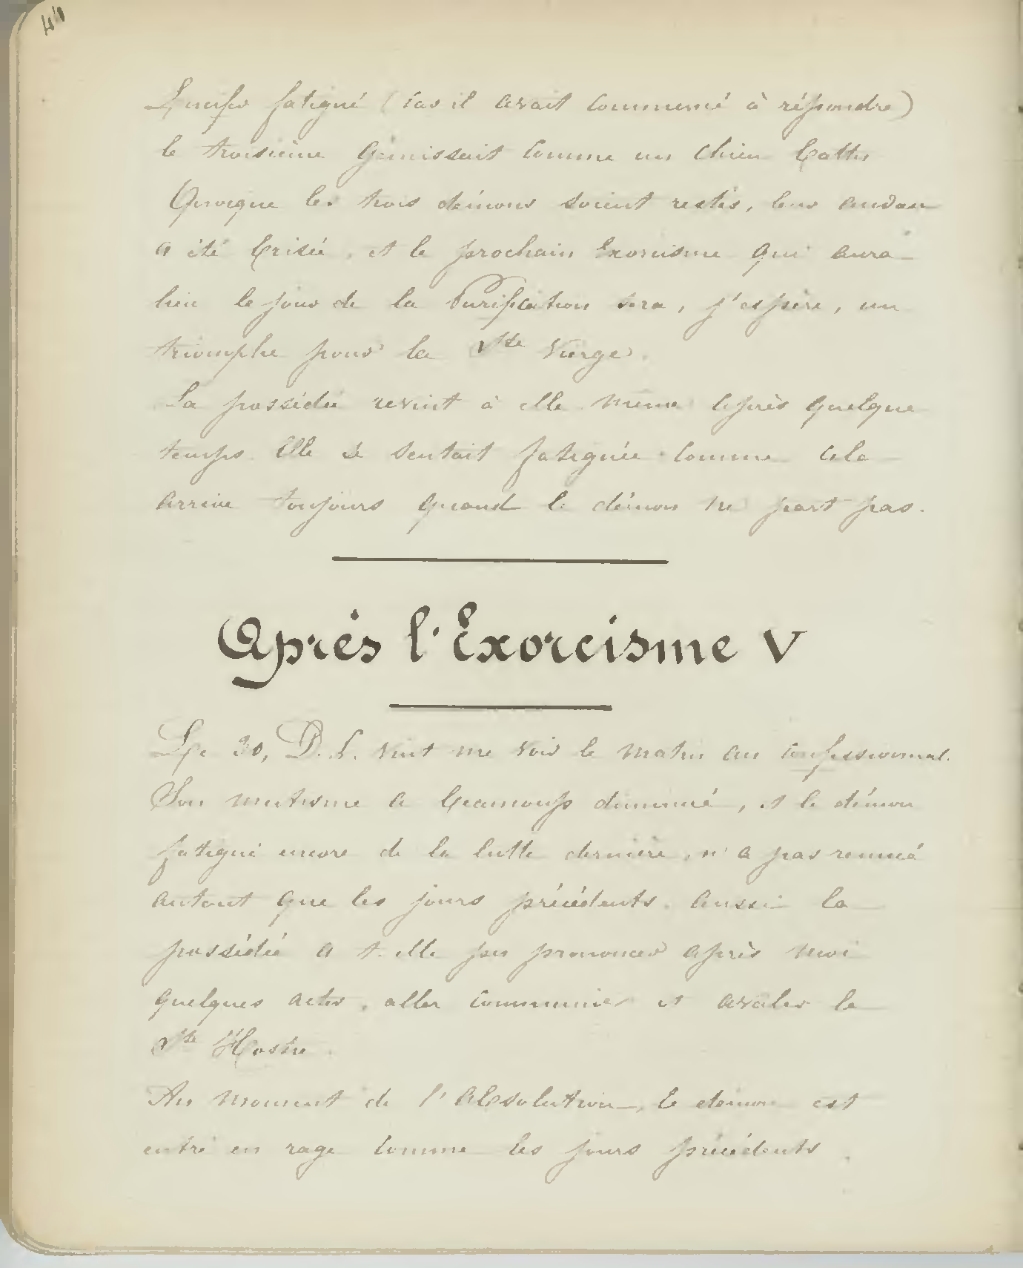 44
fatigué (car il avait commencé à répondre)
le troisième gémissait comme un chien battu
Quoique les trois démons soient restés, leur audace
a été brisée, et le prochain Exorcisme qui aura
lieu le jour de la Purification sera, j'espère, un
triomphe pour la Ste Vierge.
La possédée revint à elle même après quelque
temps. Elle se sentait fatiguée comme cela
arrive toujours quand le démon ne part pas.
Après l'Exorcisme V
Le 30, D. L. vint me voir le matin au confessionnal.
Son mutisme a beaucoup diminué, et le démon
fatigué encore de la lutte dernière, n'a pas remué
autant que les jours précédents. Aussi la
possédée a t-elle pu prononcer après moi
quelques actes, aller communier et avaler la
Ste Hostie.
Au moment de l'Absolution, le démon est
entré en rage comme les jours précédents.